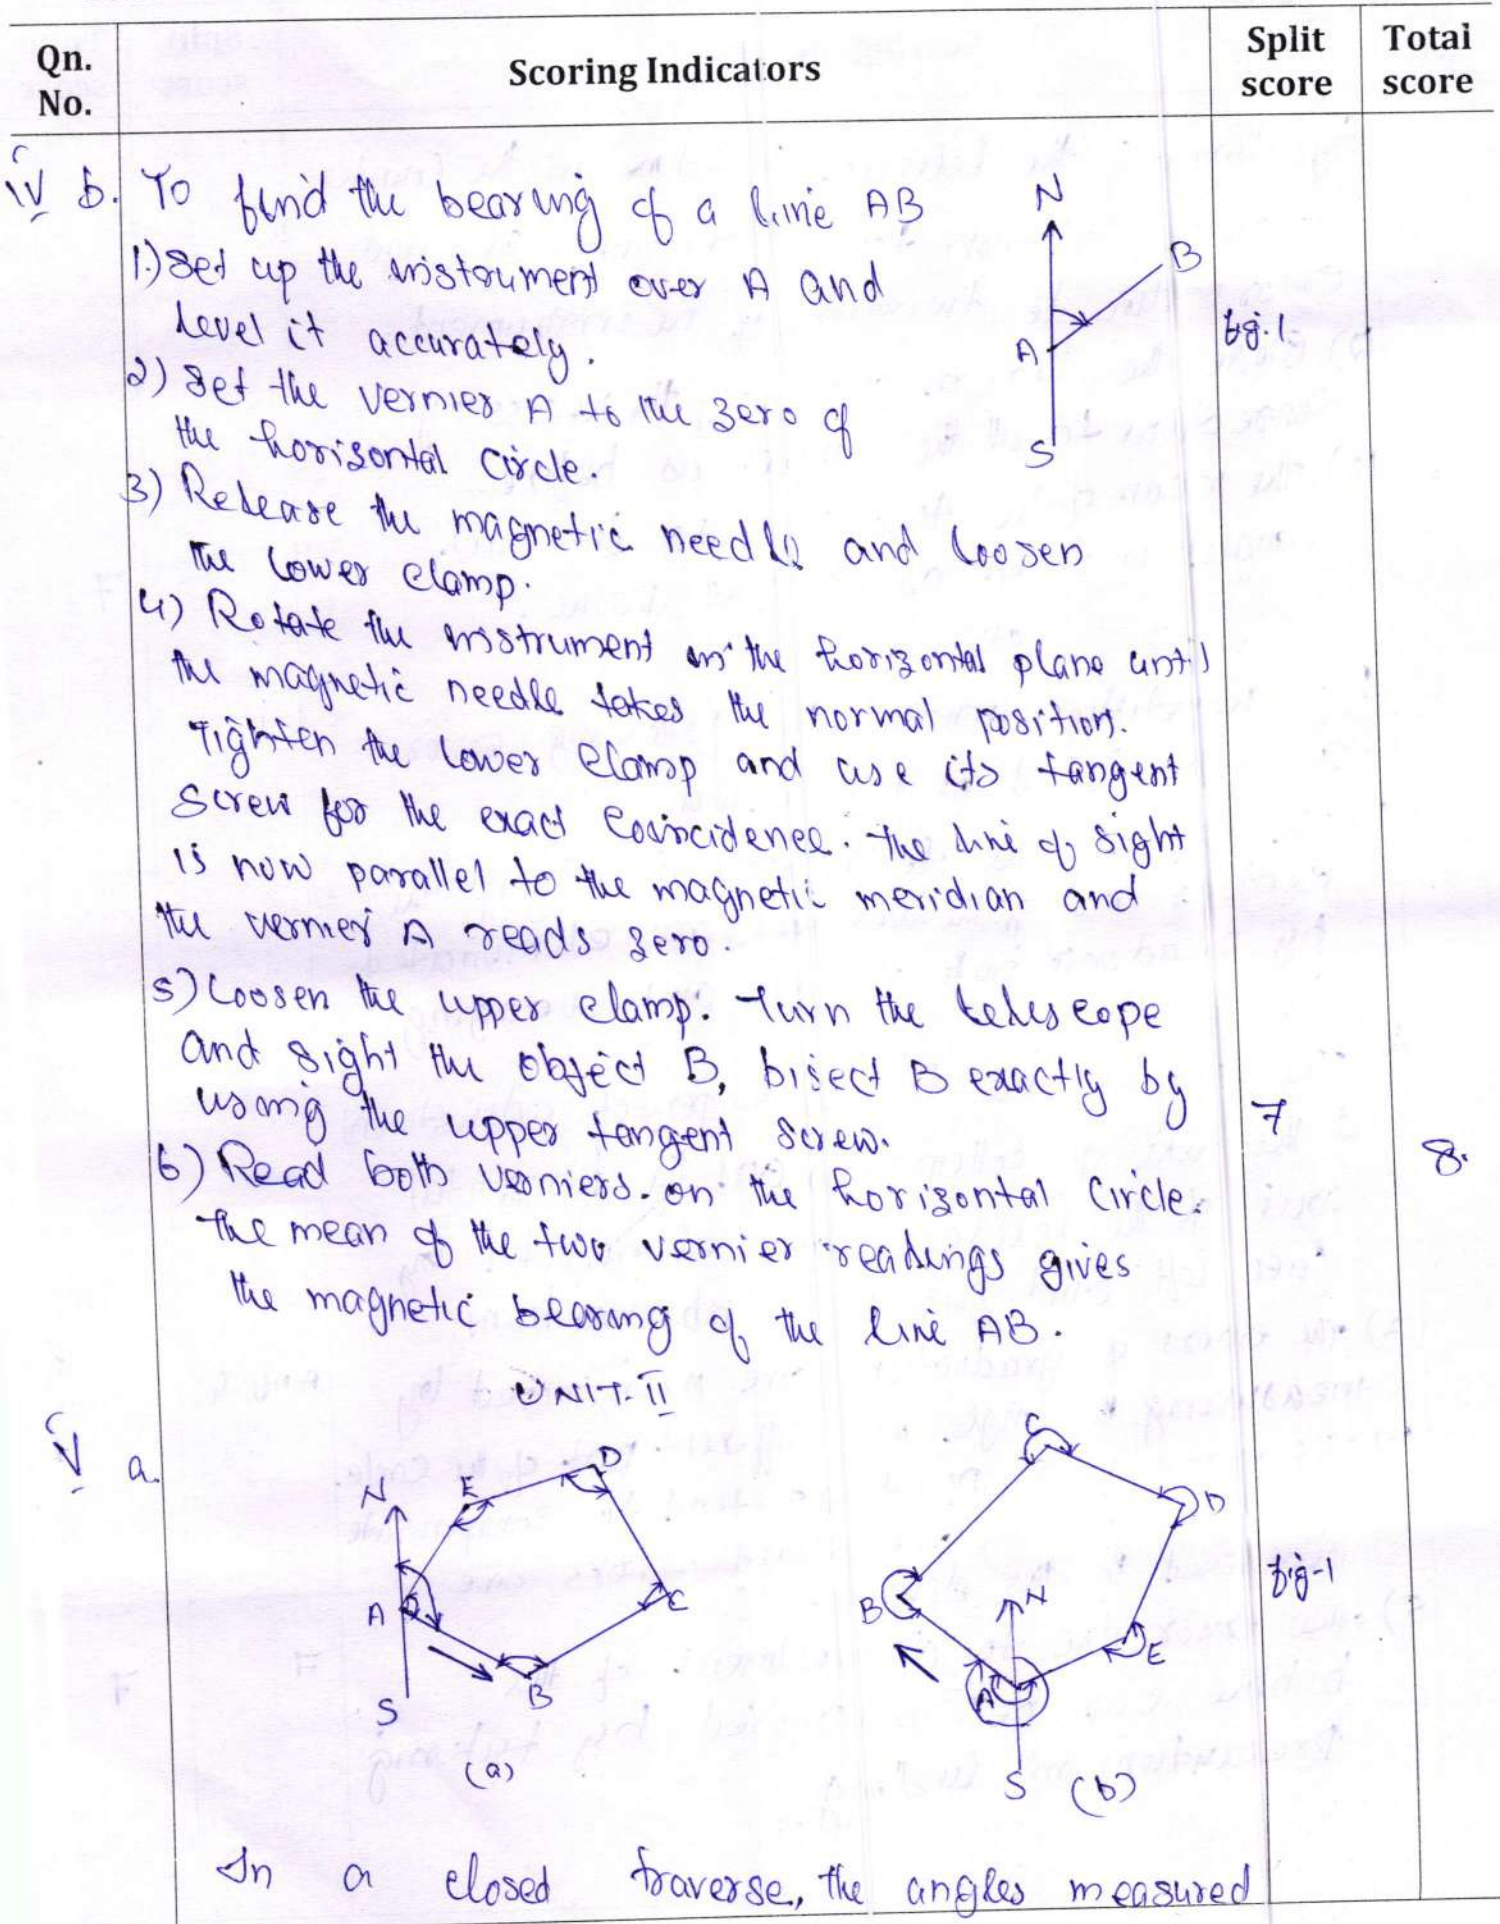 Qn. No.
Scoring Indicators
Split score
Total score
IV b. To find the bearing of a line AB
1.) Set up the instrument over A and
level it accurately.
2) Set the vernier A to the zero of
the horizontal circle.
3) Release the magnetic needle and loosen
the lower clamp.
4) Rotate the instrument in the horizontal plane until
the magnetic needle takes the normal position.
Tighten the lower clamp and use its tangent
screw for the exact coincidence. The line of sight
is now parallel to the magnetic meridian and
the vernier A reads zero.
5) Loosen the upper clamp. Turn the telescope
and sight the object B, bisect B exactly by
using the upper tangent screw.
6) Read both verniers on the horizontal circle.
The mean of the two vernier readings gives
the magnetic bearing of the line AB.
N
B
A
S
fig. 1
7
8.
UNIT-II
V a.
N
E
D
A
C
B
S
(a)
C
D
B
N
E
A
S
(b)
fig-1
In a closed traverse, the angles measured